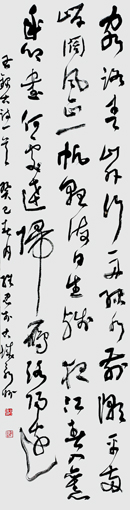 客路青山外行舟绿水前潮平两
岸阔风正一帆悬海日生残夜江春入旧
年乡书何处达归雁洛阳边
王湾诗一首 癸巳春月